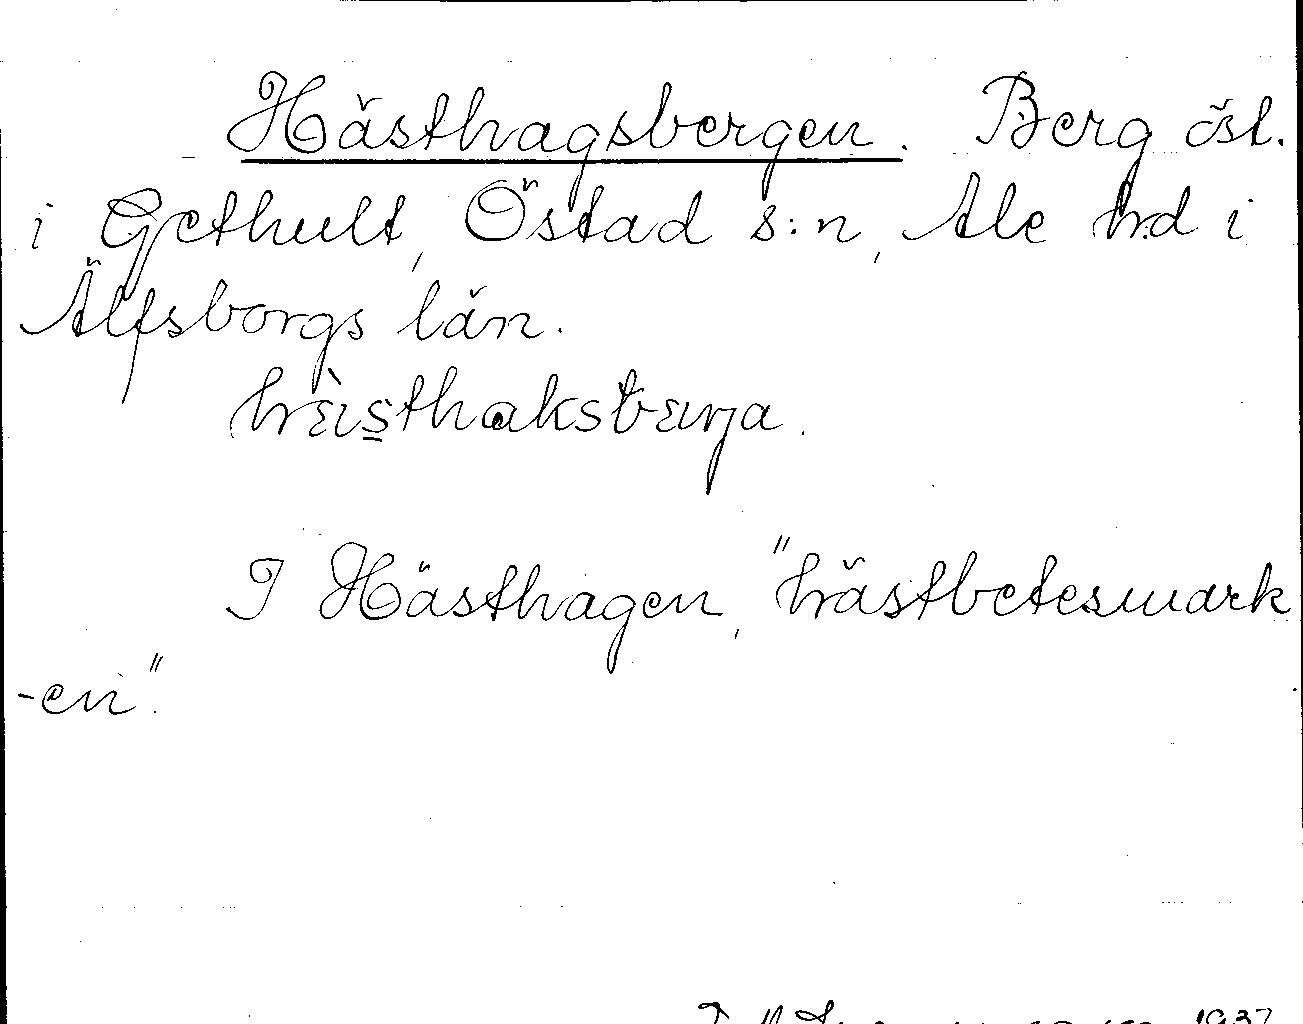 Hästhagsbergen. Berg östl.
i Gethult, Östad s:n, Ale hd i
Älfsborgs län.
I Hästhagen, "hästbetesmark
-en".
1937